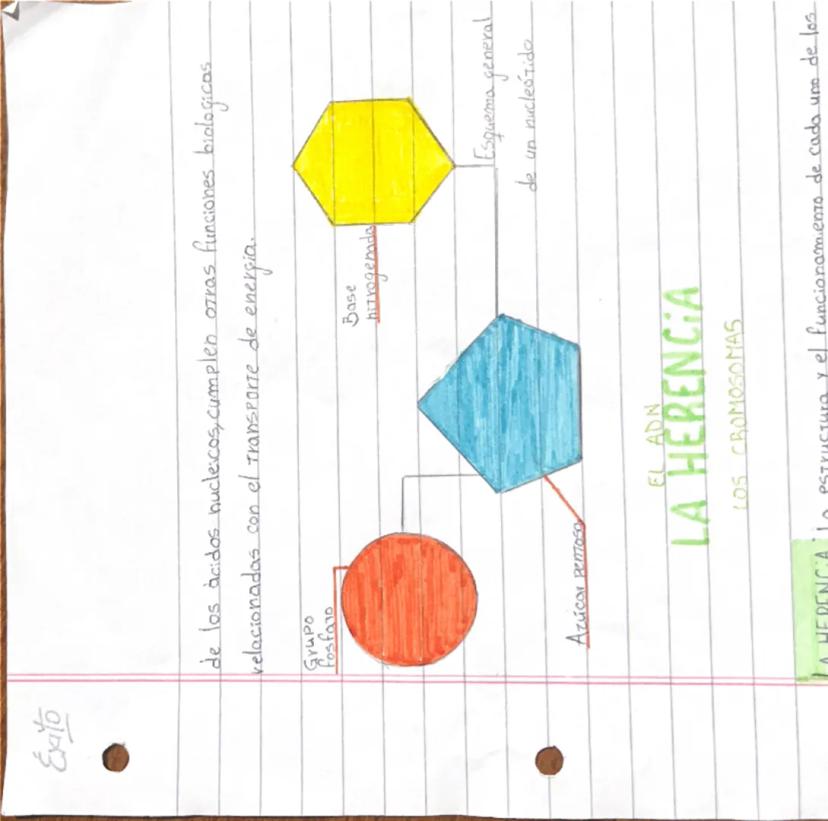 Éxito
de los ácidos nucleicos, cumplen otras funciones biológicas
relacionadas con el transporte de energía.
Grupo
fosfato
Base
nitrogenada
Esquema general
de un nucleótido
Azúcar pentosa
EL ADN
LA HERENCiA
LOS CROMOSOMAS
LA HERENCIA: la estructura y el funcionamiento de cada uno de los